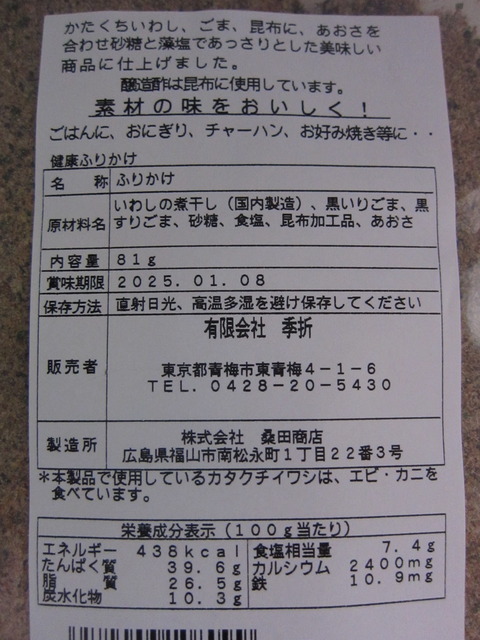 かたくちいわし、ごま、昆布に、あおさを
合わせ砂糖と藻塩であっさりとした美味しい
商品に仕上げました。
醸造酢は昆布に使用しています。
素材の味をおいしく！
ごはんに、おにぎり、チャーハン、お好み焼き等に・・
健康ふりかけ
名 称 ふりかけ
原材料名 いわしの煮干し（国内製造）、黒いりごま、黒
すりごま、砂糖、食塩、昆布加工品、あおさ
内容量 81g
賞味期限 2025.01.08
保存方法 直射日光、高温多湿を避け保存してください
販売者 有限会社 季折
東京都青梅市東青梅4-1-6
TEL. 0428-20-5430
製造所 株式会社 桑田商店
広島県福山市南松永町1丁目22番3号
＊本製品で使用しているカタクチイワシは、エビ・カニを
食べています。
栄養成分表示（100g当たり）
エネルギー 438kcal 食塩相当量 7.4g
たんぱく質 39.6g カルシウム 2400mg
脂 質 26.5g 鉄 10.9mg
炭水化物 10.3g